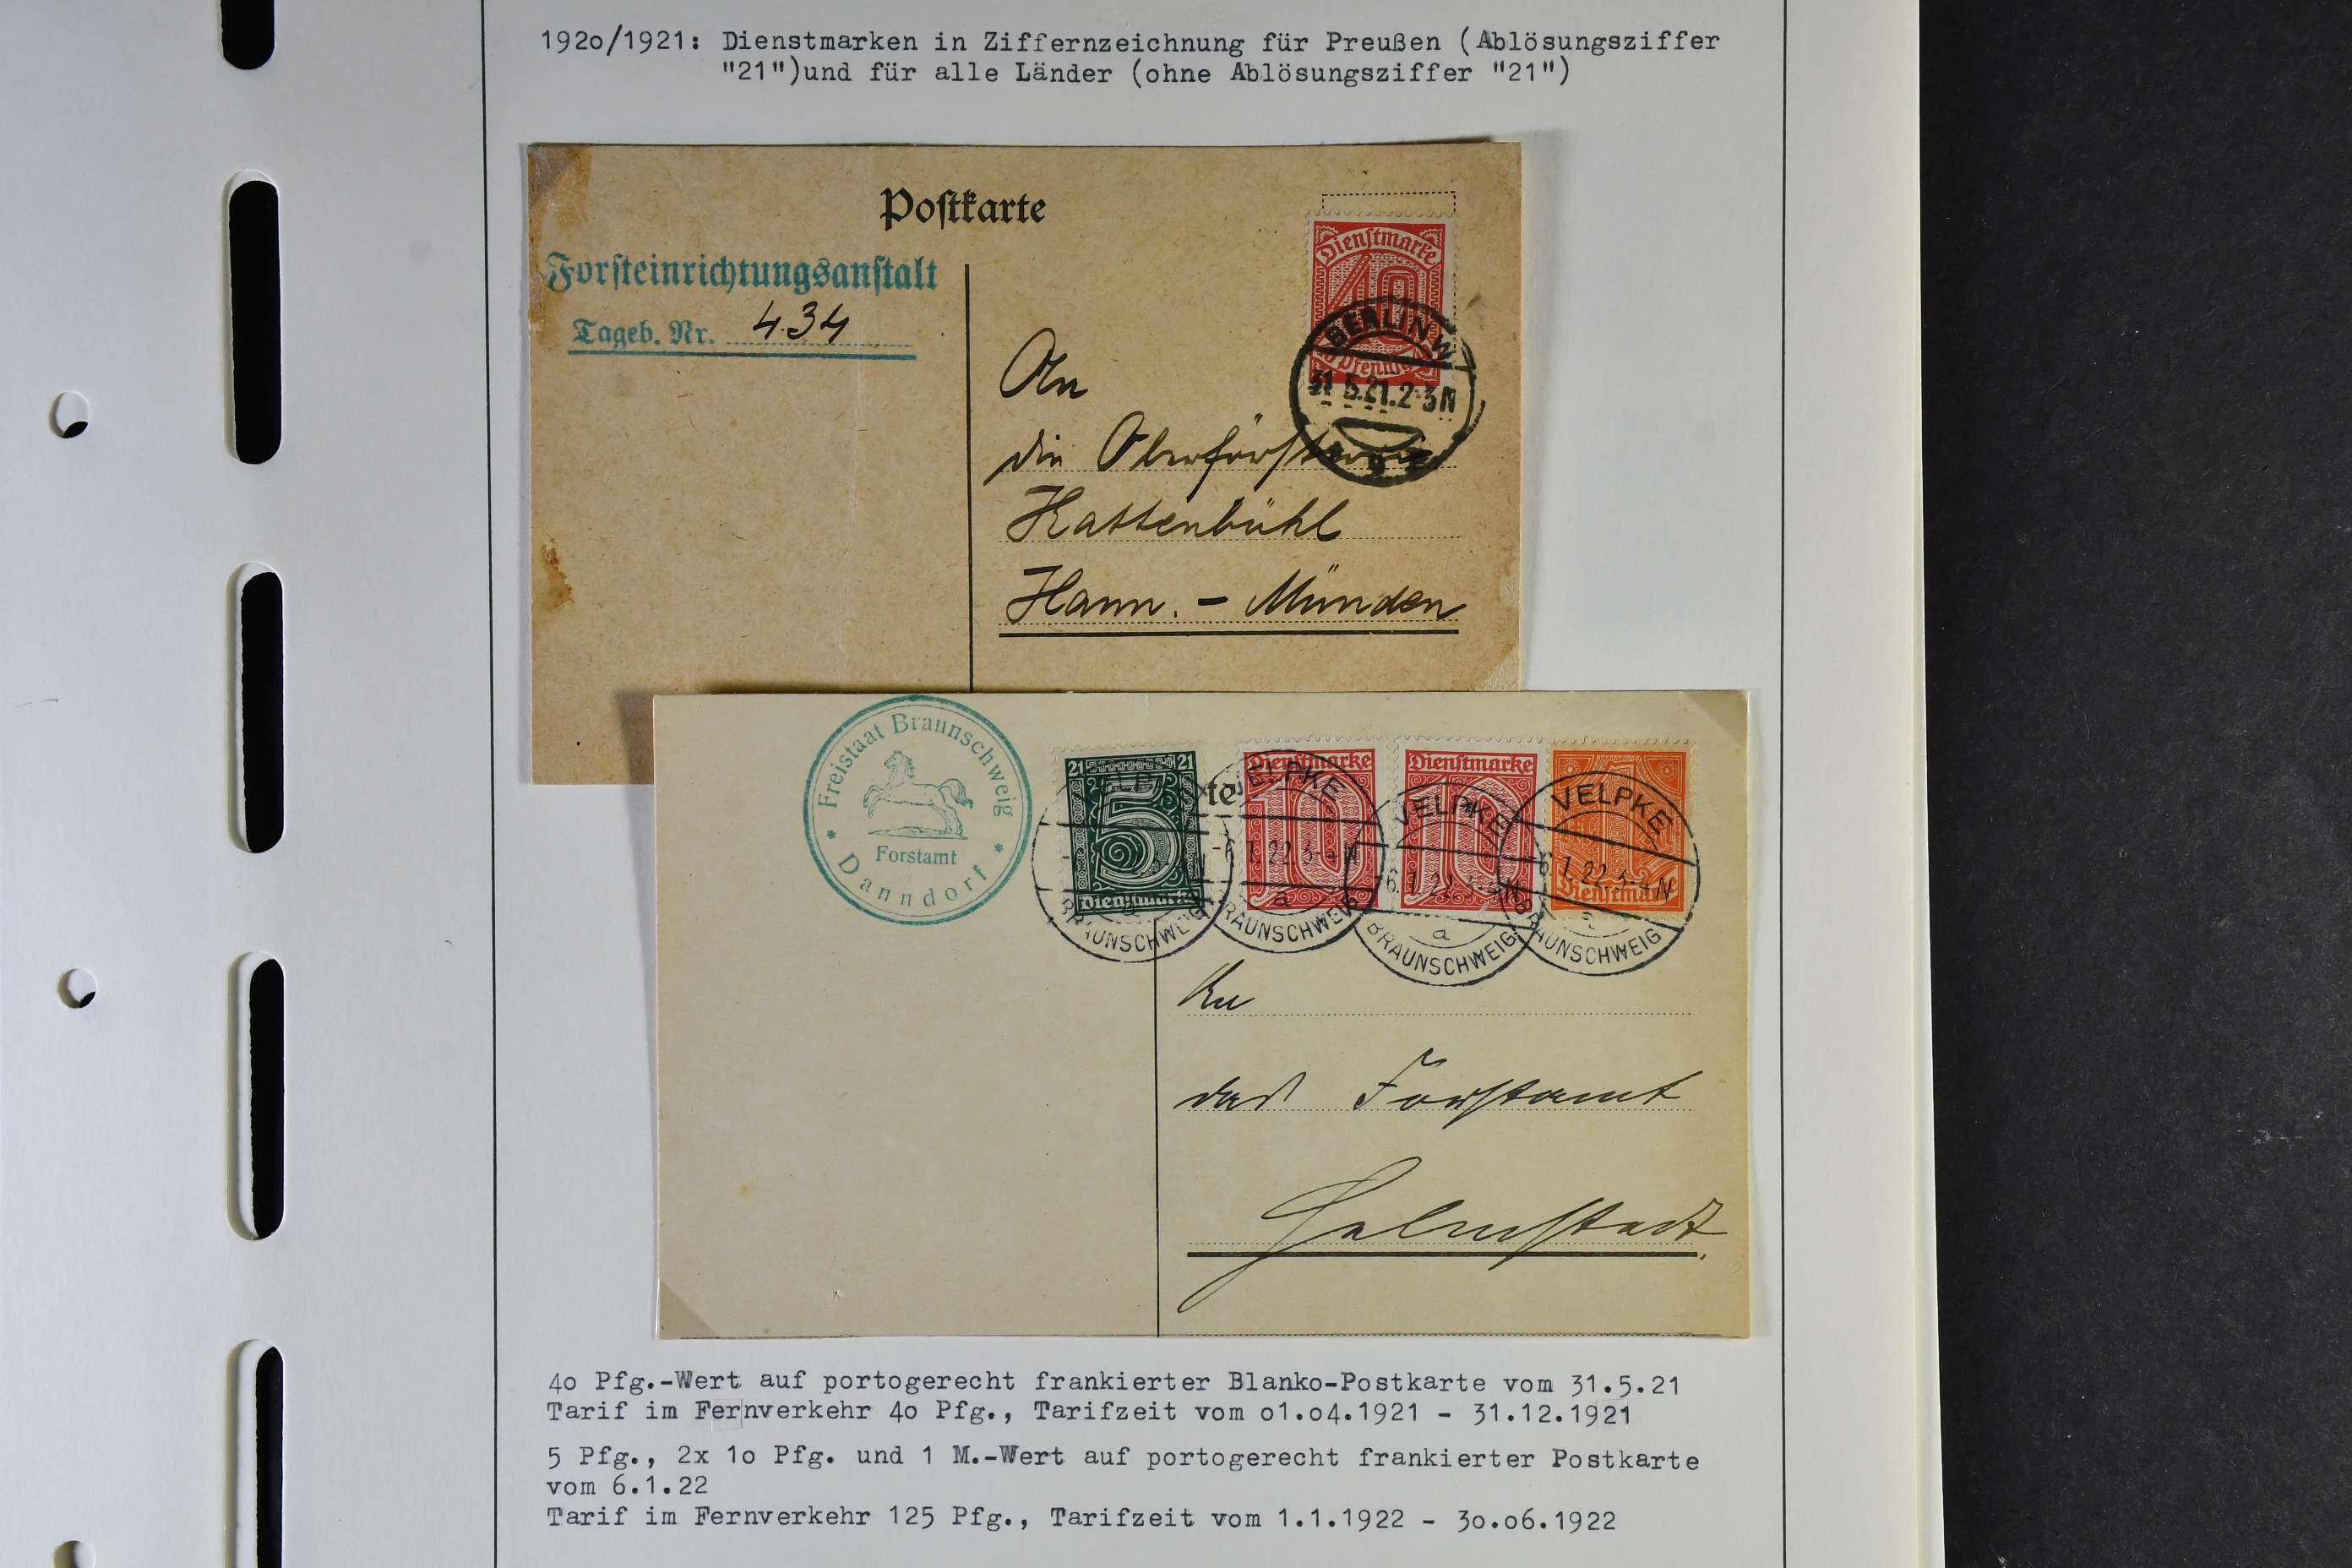 192o/1921: Dienstmarken in Ziffernzeichnung für Preußen (Ablösungsziffer
"21")und für alle Länder (ohne Ablösungsziffer "21")
Postkarte
Forsteinrichtungsanstalt
Tageb. Nr. 434
Dienstmarke
40
Pfennig
BERLIN W
31.5.21.2-3N
An
die Oberförsterei
Kattenbühl
Hann. - Münden
Freistaat Braunschweig
Forstamt
* Danndorf *
21 21
5
Dienstmarke
te
Dienstmarke
10
Dienstmarke
10
1
Dienstmarke
VELPKE
BRAUNSCHWEIG
VELPKE
-6.1.22.3-4N
a
BRAUNSCHWEIG
VELPKE
-6.1.22.3-4N
a
BRAUNSCHWEIG
VELPKE
-6.1.22.3-4N
BRAUNSCHWEIG
An
das Forstamt
Helmstedt.
4o Pfg.-Wert auf portogerecht frankierter Blanko-Postkarte vom 31.5.21
Tarif im Fernverkehr 4o Pfg., Tarifzeit vom o1.o4.1921 - 31.12.1921
5 Pfg., 2x 1o Pfg. und 1 M.-Wert auf portogerecht frankierter Postkarte
vom 6.1.22
Tarif im Fernverkehr 125 Pfg., Tarifzeit vom 1.1.1922 - 3o.o6.1922